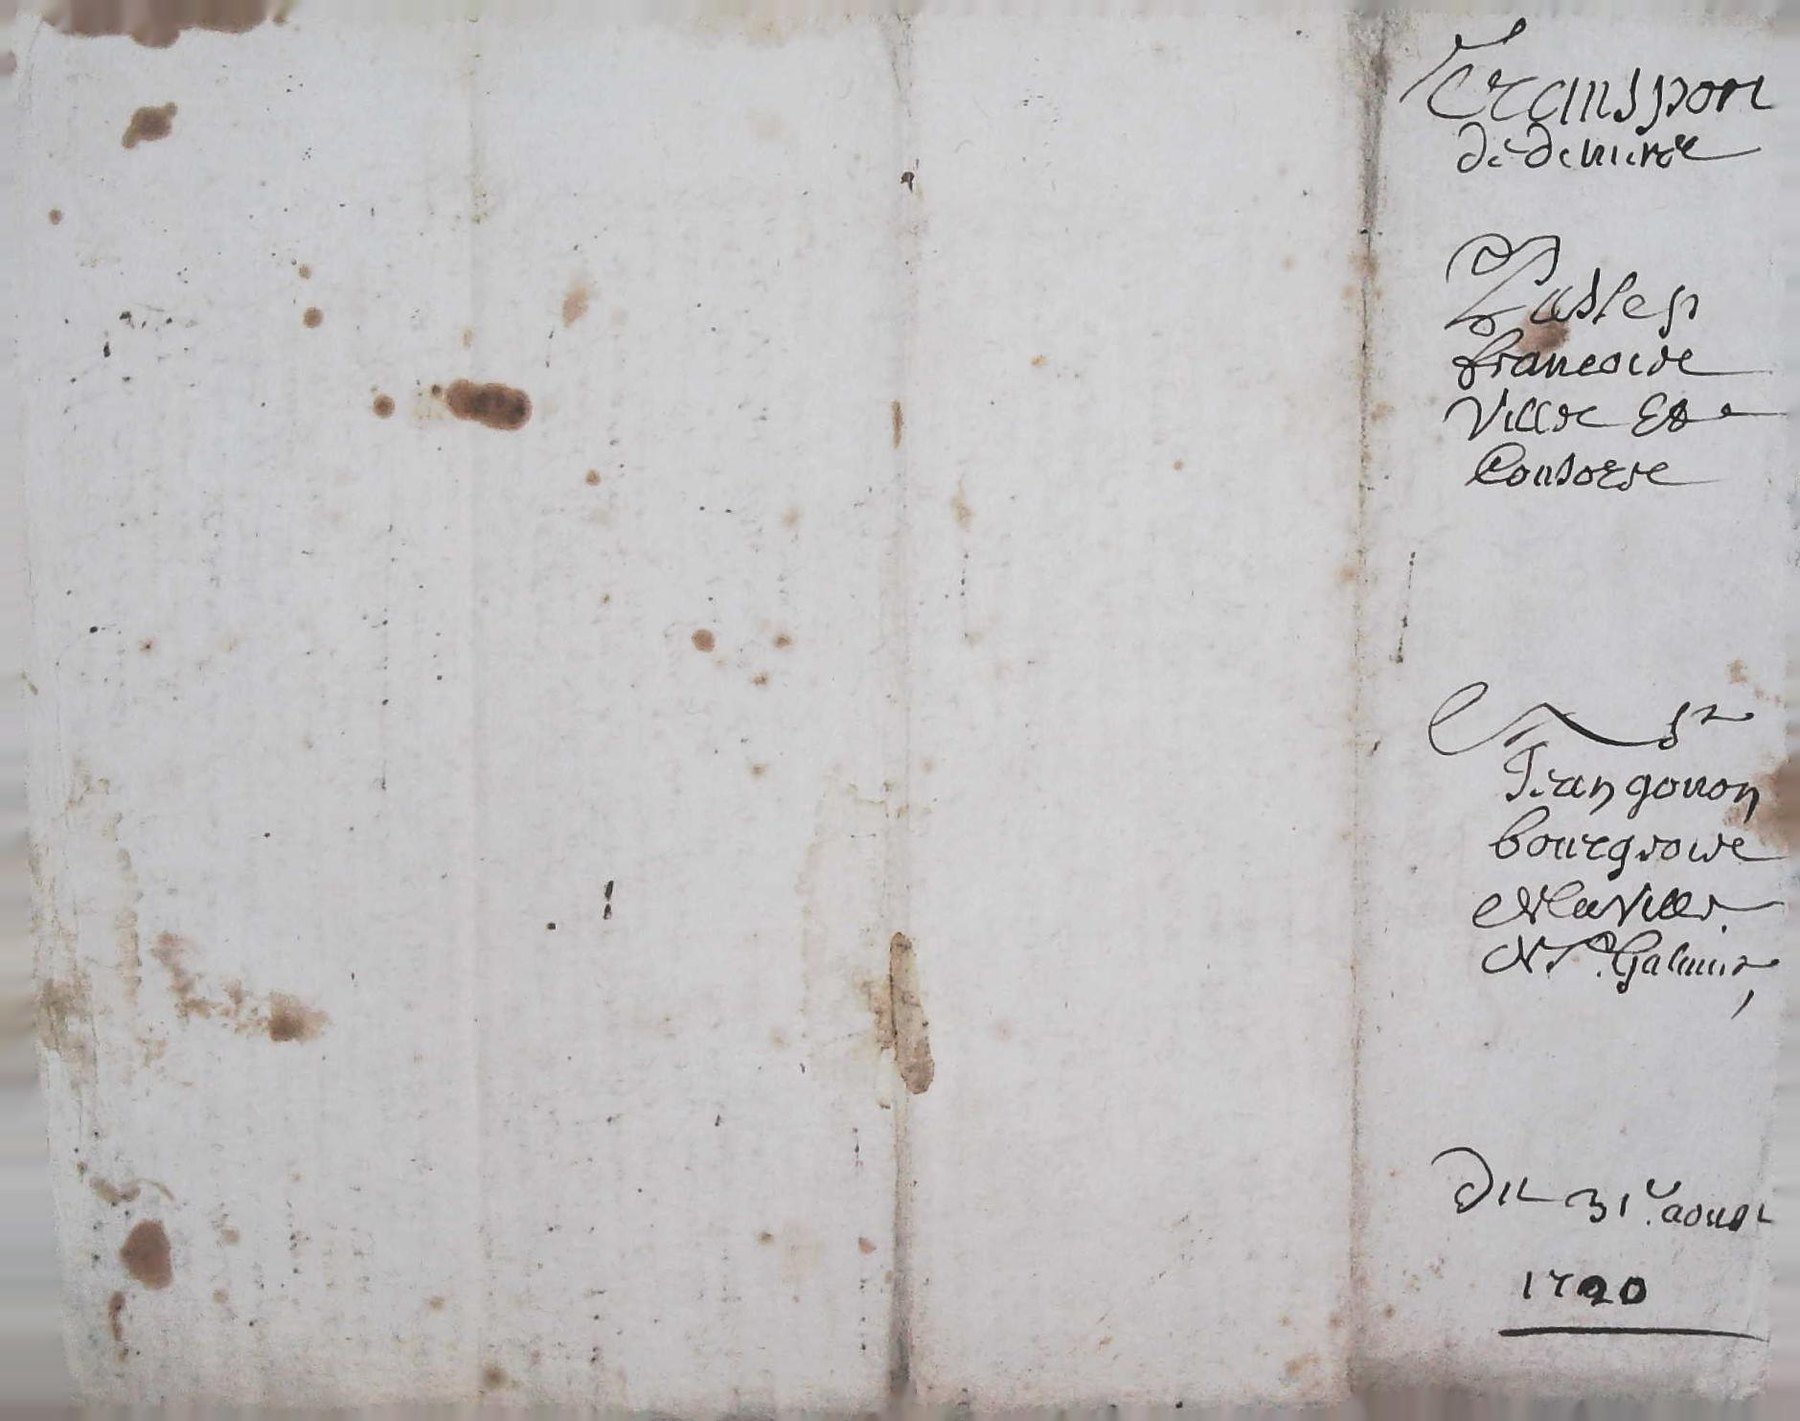 Transport
de deniers
Par les sr
francois
Villes Et
Consors
A Sr
Jean gonon
bourgeois
de la Ville
de St. Galmier,
Du 31e. aoust
1720